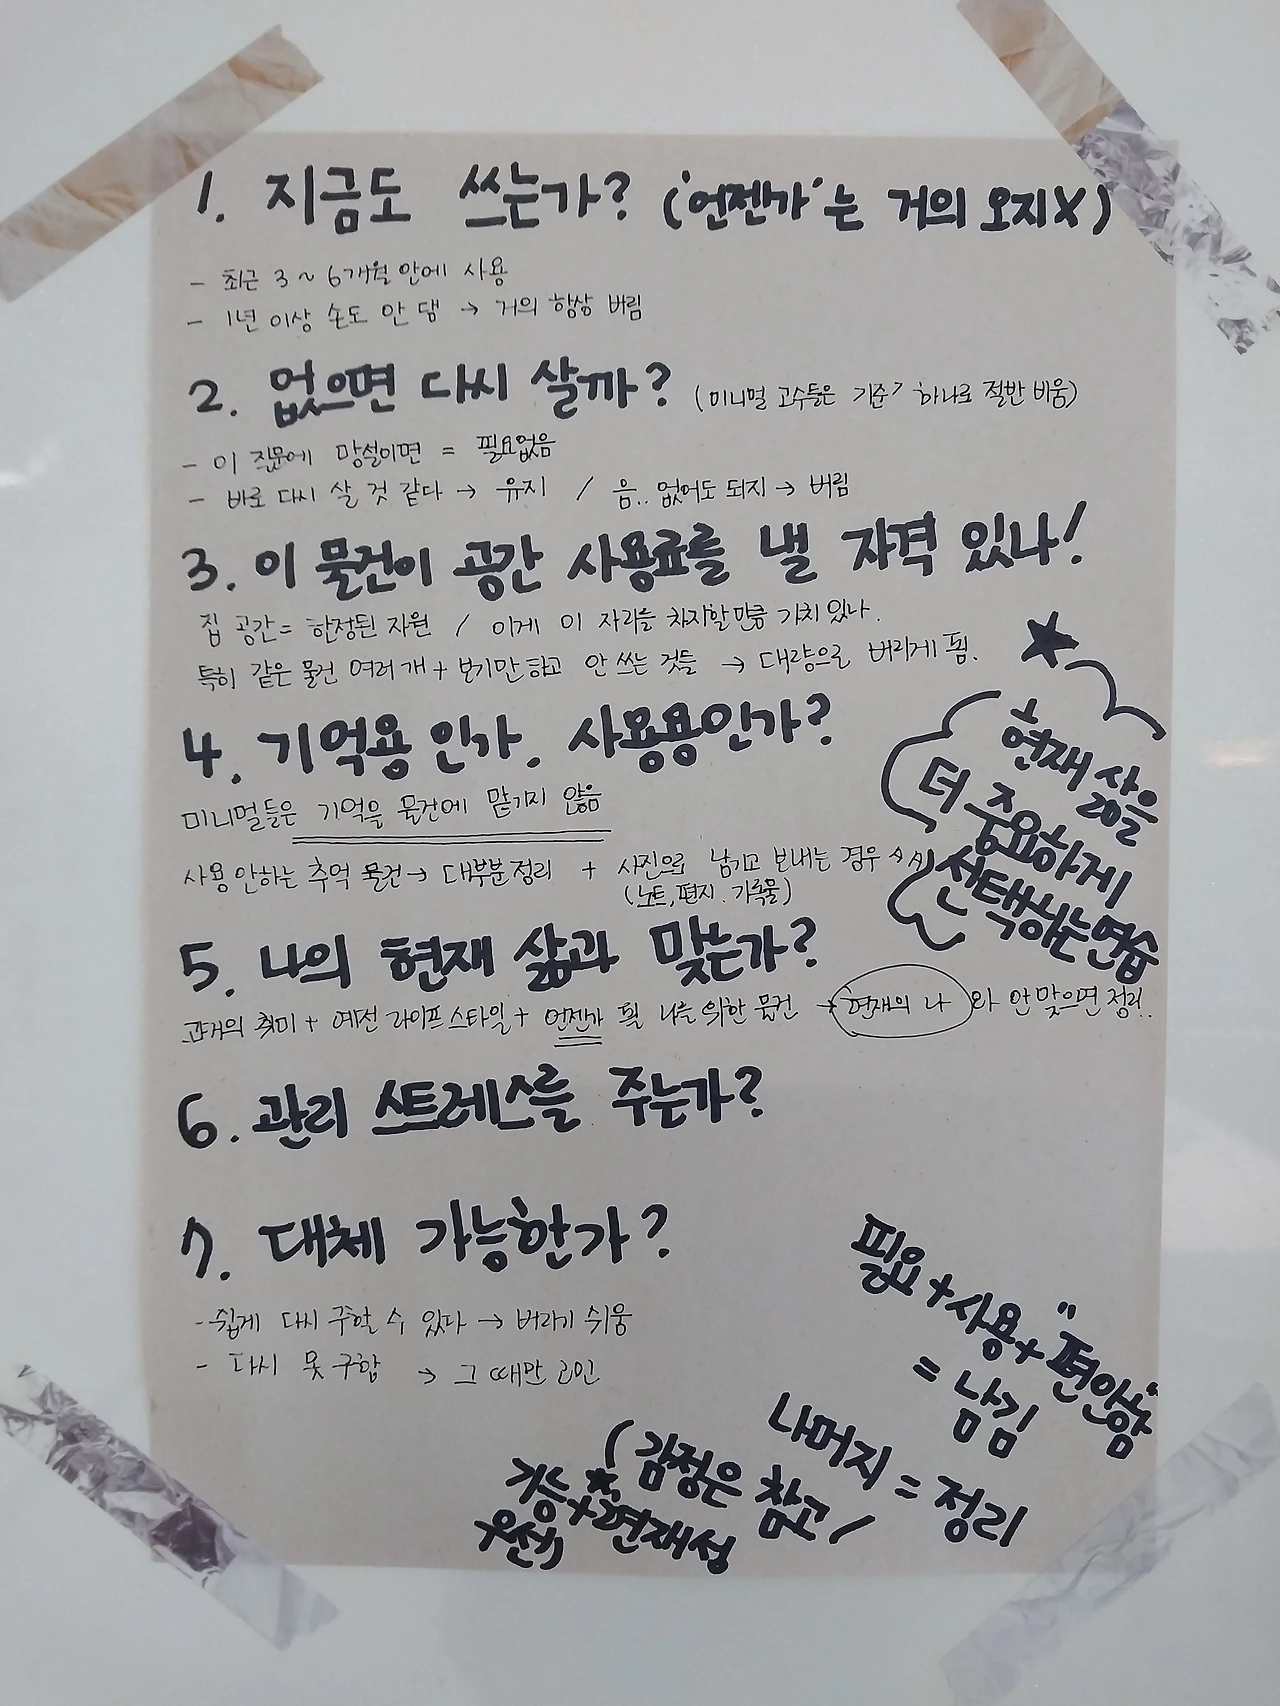 1. 지금도 쓰는가? ('언젠가'는 거의 오지X)
- 최근 3~6개월 안에 사용
- 1년 이상 손도 안 댐 → 거의 항상 버림
2. 없으면 다시 살까? (미니멀 고수들은 기준 하나로 절반 비움)
- 이 질문에 망설이면 = 필요없음
- 바로 다시 살 것 같다 → 유지 / 음.. 없어도 되지 → 버림
3. 이 물건이 공간 사용료를 낼 자격 있나!
집 공간 = 한정된 자원 / 이게 이 자리를 차지할만큼 가치 있나.
특히 같은 물건 여러 개 + 보기만 하고 안 쓰는 것들 → 대량으로 버리게 됨.
4. 기억용인가, 사용용인가?
미니멀들은 기억을 물건에 맡기지 않음
사용 안하는 추억 물건 → 대부분 정리 + 사진으로 남기고 보내는 경우
(노트, 편지. 기록물)
현재 삶을
더 중요하게
선택하는 연습
5. 나의 현재 삶과 맞는가?
과거의 취미 + 예전 라이프스타일 + 언젠가 될 나를 위한 물건 → 현재의 나 와 안 맞으면 정리..
6. 관리 스트레스를 주는가?
7. 대체 가능한가?
- 쉽게 다시 구할 수 있다 → 버리기 쉬움
- 다시 못 구함 → 그 때만 고민
필요 + 사용 + "편안함"
= 남김
나머지 = 정리
(감정은 참고/
기능 + 현재성
우선)